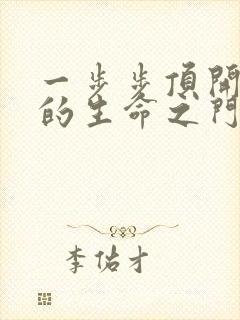 一步步頂開
的生命之門
李佑才